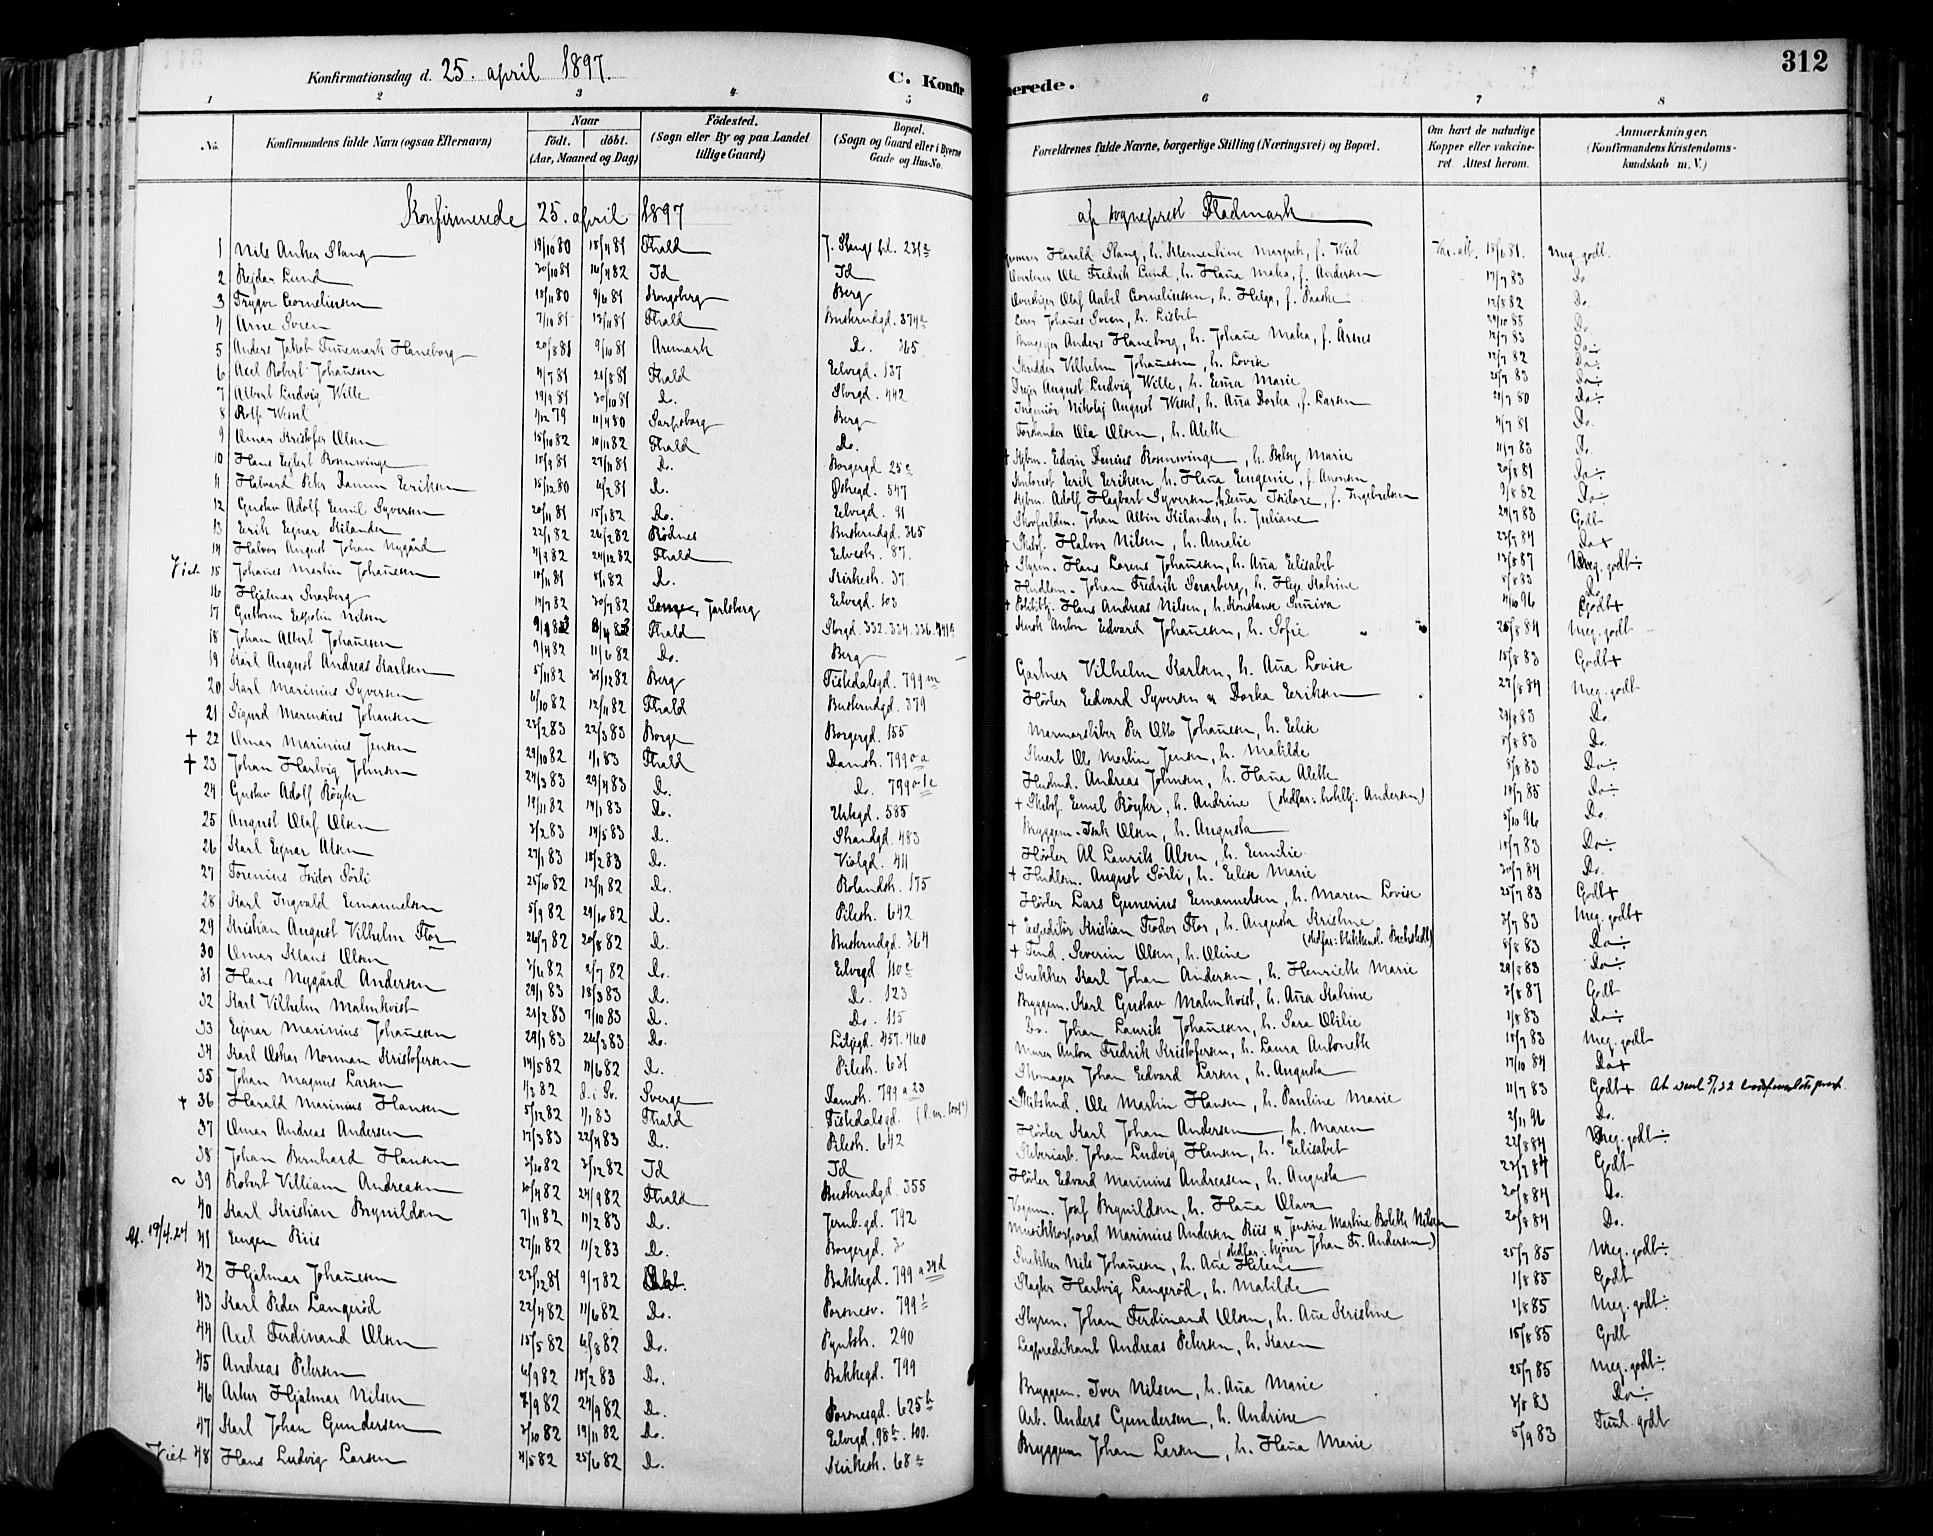 312
Konfirmationsdag d. 25. april 1897.
C. Konfirmerede.
1 2 3 4 5 6 7 8
No. Konfirmandens fulde Navn (ogsaa Efternavn) Naar født. døbt. (Aar, Maaned og Dag) Fødested. (Sogn eller By og paa Landet tillige Gaard) Bopæl. (Sogn og Gaard eller i Byerne Gade og Hus-No. Forældrenes fulde Navne, borgerlige Stilling (Næringsvei) og Bopæl. Om havt de naturlige Kopper eller vaccineret. Attest herom. Anmærkninger. (Konfirmandens Kristendomskundskab m. V.)
Konfirmerede 25. april 1897 af sogneprest Fladmark
1 Nils Anker Stang 19/10 80 18/4 81 Fhald Harald Stang, h. Klementine Margrete, f. Wiel 18/6 81. Meg. godt.
2 Rejdar Lund 30/10 81 16/4 82 Id Id Ole Fredrik Lund, h. Hana f. Andersen 17/7 83 Do.
3 Trygve Cornelius­sen 18/11 80 9/6 81 Kongsberg Berg Olaf Cornelius­sen, h. Helga, f. Paaske 12/8 82 Do.
4 Arne Sveen 7/10 81 13/11 81 Fhald Buskrudgd. 374a Lærer Johanes Sveen, h. Lisbet Do.
5 Anders Jakob Haneborg 20/8 81 9/10 81 Aremark Do. 365 Anders Haneborg, h. Johane f. Årnes 12/7 83
6 Axel Robert Johanesen 4/7 81 21/8 81 Fhald Elvegd. 137 Skredder Vilhelm Johanesen, h. Lovise 12/7 82
7 Albert Ludvig Wille 19/9 81 30/10 81 D. Storgd. 442 August Ludvig Wille, h. Ema Marie
8 Rolf Wessel 1/12 79 11/4 80 Sarpsborg Berg Ingeniør Nikolaj August Wessel, h. Ana Dorka, f. Larsen 21/7 80
9 Omar Kristofer Olsen 15/10 82 10/11 82 Fhald Do. Ole Olsen, h. Alette 4/7 81 Do.
10 Hans Egbert Rosenvinge 15/9 81 27/11 81 D. Borgergd 25c Edvin Rosenvinge, h. Betsy Marie 11/7 83 Do.
11 Halvard Peter Eriksen 15/12 80 6/2 81 D. Østregd. 547 Erik Eriksen, h. Hana Eugenie, f. 20/8 81
12 Gustav Adolf Emil Syversen 20/11 81 15/1 82 Do. Elvegd. 91 Adolf Hagbart Syversen, h. Ema Isidore, f. Ingebretsen 9/8 82
13 Erik Ejnar Kilander 22/1 82 26/2 82 Rødnes Buskrudgd. 365 Johan Albin Kilander, h. Juliane 24/7 83 Godt
14 Halvor August Johan Nygård 4/9 82 24/12 82 Fhald Elvestr. 87. Halvor Nilsen, h. Amalie 23/7 84 Do+
15 Johanes Martin Johanesen 10/11 81 8/1 82 D. Kirkestr. 37. † Styrm. Hans Lorens Johanesen, h. Ana Elisabet 12/8 87 Meg. godt
16 Hjalmar Svarberg 14/7 82 30/7 82 Jarlsberg Elvegd. 103 Johan Fredrik Svarberg, h. Katrine 8/8 83
17 Guttorm Nilsen Fhald Storgd. 332.334.336. † Politibtj. Hans Andreas Nilsen, h. Konstanse Suniva 4/10 96 Godt+
18 Johan Albert Johanesen 9/4 82 11/6 82 Do. Berg Anton Edvard Johanesen, h. Sofie 25/8 84 Meg. godt
19 Karl August Andreas Karlsen 5/11 82 31/12 82 Berg Fiskedalsgd. 799m Gartner Vilhelm Karlsen, h. Ana Lovise 15/8 83 Godt+
20 Karl Marinius Syversen 6/10 82 12/11 82 Fhald Buskrudgd. 379 Høvler Edvard Syversen & Dorka Eriksen 27/8 84 Meg. godt
21 Sigurd Marensius Johansen 23/2 83 22/3 83 Borge Borgergd. 155 Marmorsliber Per Otto Johanesen, h. Elise 29/8 83 Do.
† 22 Omar Marinius Jensen 29/10 82 1/1 83 Fhald Damstr. 799 Ole Martin Jensen, h. Matilde 8/8 83 Do.
† 23 Johan Hartvig Johnsen 24/3 83 29/4 83 D. D. 799 Andreas Johnsen, h. Hana Alette 8/8 83 Do
24 Gustav Adolf Røyter 19/11 82 14/1 83 D. Urtegd. 585 † Emil Røyter, h. Andrine (stedfar: Andersen) 19/7 85 Do
25 August Olaf Olsen 3/2 83 14/5 83 D. Strandgd. 483 Bryggem. Isak Olsen, h. Augusta 5/10 96 Do.
26 Karl Ejnar Alsen 27/1 83 18/2 83 D. Violgd. 411 Høvler Al. Laurits Alsen, h. Emilie 18/7 83 Do
27 Torenius Isidor Sørli 25/10 82 12/11 82 D. Rolandstr. 175 † August Sørli, h. Elise Marie 30/7 84 Do.
28 Karl Ingvald Emanuelsen 5/9 82 29/10 82 D. Pilestr. 642 Høvler Lars Gunerius Emanuelsen, h. Maren Lovise 25/7 83 Godt+
29 Kristian August Vilhelm Flor 26/7 82 20/8 82 D. Buskrudgd. 364 † Expeditör Kristian Teodor Flor, h. Augusta Kristine 3/7 83 Meg. godt+
30 Omar Klaus Olsen 3/6 82 2/7 82 D. Elvegd. 110c † Severin Olsen, h. Oline 8/8 83 Do
31 Hans Nygård Andersen 29/1 83 18/3 83 D. D. 123 Snekker Karl Johan Andersen, h. Henriette Marie 29/8 83 Do
32 Karl Vilhelm Malmkvist 21/2 83 7/10 83 D. Do. 115 Bryggem. Karl Gustav Malmkvist, h. Ana Katrine 3/8 87 Godt
33 Ejnar Marinius Johanesen 29/1 83 26/3 83 Do. 457.460 Do. Johan Laurits Johanesen, h. Sara Otilie 1/8 83 Do
34 Karl Oskar Norman Kristofersen 14/5 82 11/6 82 D. Pilestr. 631 Murer Anton Fredrik Kristofersen, h. Laura Antonette 18/7 83 Meg. godt
35 Johan Magnus Larsen 1/3 82 D. i Sv. Sverge Damstr. 799 a 23 Skomager Johan Edvard Larsen, h. Augusta 17/10 84 Do+
† 36 Harald Marinius Hansen 5/12 82 1/1 83 Fhald Fiskedalsgd. Ole Martin Hansen, h. Pauline Marie 11/7 83 Godt+
37 Omar Andreas Andersen 17/3 83 22/4 83 D. Pilestr. 642 Høvler Karl Johan Andersen, h. Maren 2/11 96 Do.
38 Johan Bernhard Hansen 3/10 82 3/12 82 Id Id Johan Ludvig Hansen, h. Elisabet 22/8 84 Meg. godt
39 Robert Villiam Andreasen 10/4 82 24/9 82 Fhald Buskrudgd. 355 Høvler Edvard Marinius Andreasen, h. Augusta 23/7 84 Godt
40 Karl Kristian Brynildsen 7/11 82 11/2 83 D. Jernb.gd. 792 Vognm. Josef Brynildsen, h. Hana Olava 20/8 84 Do.
At. 19/4.24 41 Eugen Riis 27/11 82 11/2 83 D. Borgergd. Musikkorporal Marinius Andersen Riis & Jensine Martine Bolette Nilsen (stedfar: kjører Johan Fr. Andersen) 20/8 84 Do.
42 Hjalmar Johanesen 23/12 81 9/7 82 Bakkegd. 799 a 34d Snekker Nils Johanesen, h. Ane Helene 25/7 85 Meg. godt
43 Karl Peder Langerød 22/4 82 11/6 82 Do. Porsnesv. 799 Slagter Hartvig Langerød, h. Matilde 1/8 85 Godt
44 Axel Ferdinand Olsen 15/5 82 6/8 82 Do. Pyntstr. 290 Styrm. Johan Ferdinand Olsen, h. Ane Kristine 1/8 85 Meg. godt
45 Andreas Petersen 6/9 82 18/2 83 Do. Bakkegd. 799 Lægpredikant Andreas Petersen, h. Karen 15/8 85 Godt
46 Artur Hjalmar Nilsen 7/9 82 24/9 82 Do. Porsnesgd. 625b Bryggem. Iver Nilsen, h. Ana Marie 25/7 85 Meg. godt
47 Karl Johan Gundersen 3/10 82 19/11 82 D. Elvegd. 98b. 100. Arb. Anders Gundersen, h. Andrine 3/8 83 Do
48 Hans Ludvig Larsen 4/5 82 25/6 82 D. Kirkestr. 68a Bryggem Johan Larsen, h. Hana Marie 5/9 83 Teml. godt